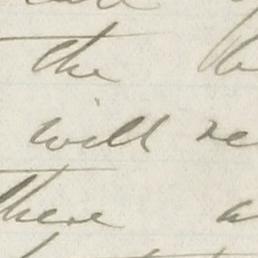 the
will re
there a